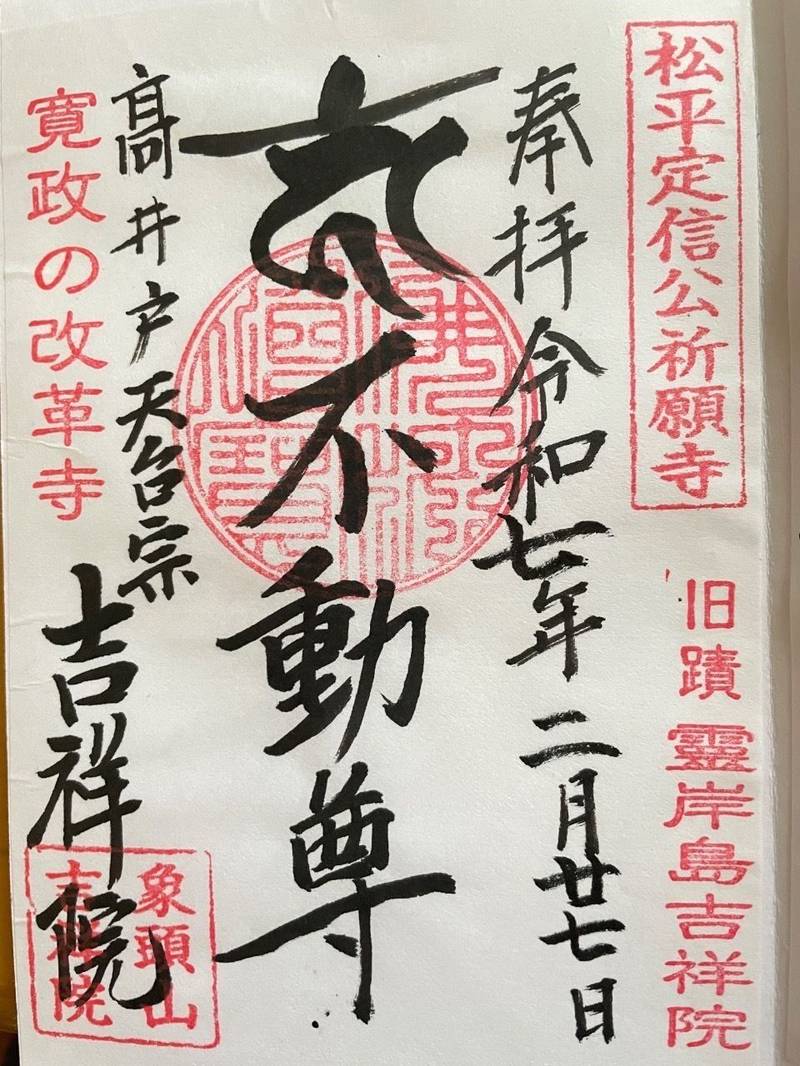 松平定信公祈願寺
旧蹟 靈岸島吉祥院
奉拝 令和七年二月廿七日
不動尊
髙井戸天台宗
吉祥院
寛政の改革寺
象頭山
吉祥院